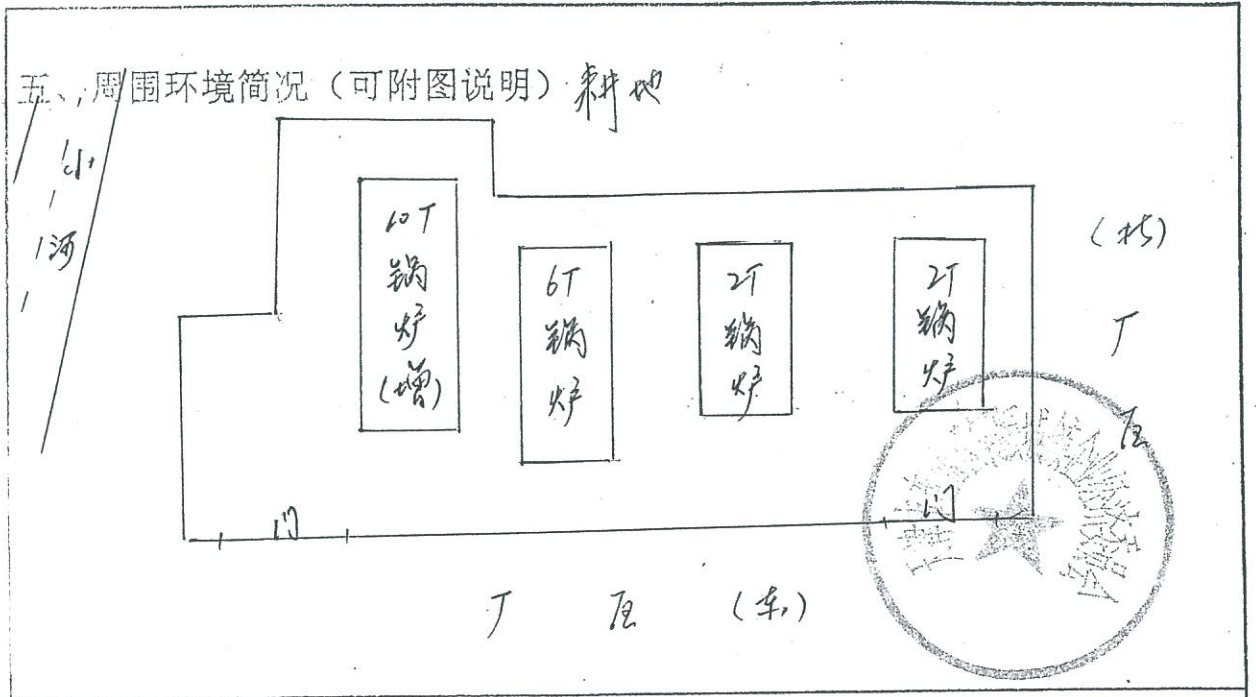 五、周围环境简况（可附图说明）耕地
小河
10T锅炉(增)
6T锅炉
2T锅炉
2T锅炉
厂区
门
门
厂区（东）